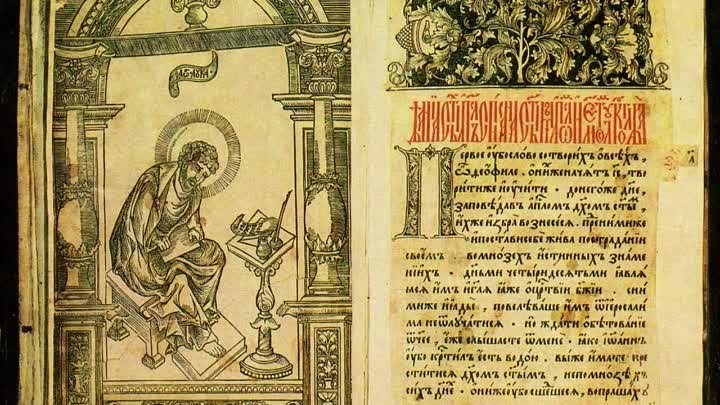 Первое ѹбо слово сотворихъ ѡ всѣхъ,
ѽ ѳеофиле. ѡ нихже начатъ іс, тво
рити же и ѹчити. донегоже дне,
заповѣдавъ апломъ дхомъ стым,
ихже избра вознесеся. пред ними же
и постави себе жива по страдании
своемъ во мнозѣхъ истинныхъ зна́ме
нїихъ. дньми четыридесятьми ꙗвлѧ
ꙗсѧ имъ и глѧ ꙗже о црствїи бжїи. сни
миже и ꙗды, повелѣваше имъ ѿ иерⷭ҇али
ма не ѿлꙋчатисѧ. но ждати обѣтованїе
ѿчее, еже слышасте ѿ мене. ꙗко іѡаннъ
ѹбо крⷭ҇тилъ есть водою. вы же имате кре
стити сѧ дхомъ стым, не по мнозѣхъ
сихъ дне. они же ѹбо сшедшесѧ, вопрашахꙋ